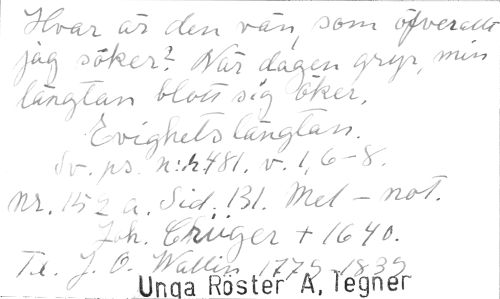 Hvar är den vän, som öfverallt
jag söker? När dagen gryr, min
längtan blott sig öker.
Evighetslängtan.
Sv. ps. n:r 481. v. 1, 6-8.
Nr. 152 a. Sid. 131. Mel - not.
Joh. Crüger + 1640.
T.e. J. O. Wallin 1779-1839
Unga Röster A, Tegner